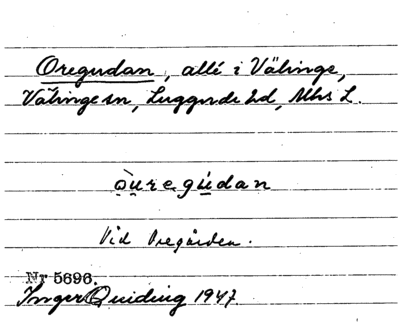 Oregudan, allé i Välinge,
Välinge sn, Luggude hd, Mhs L.
ѹùregu̇dan
Vid Oregården.
Nr 5696.
Inger Quiding 1947